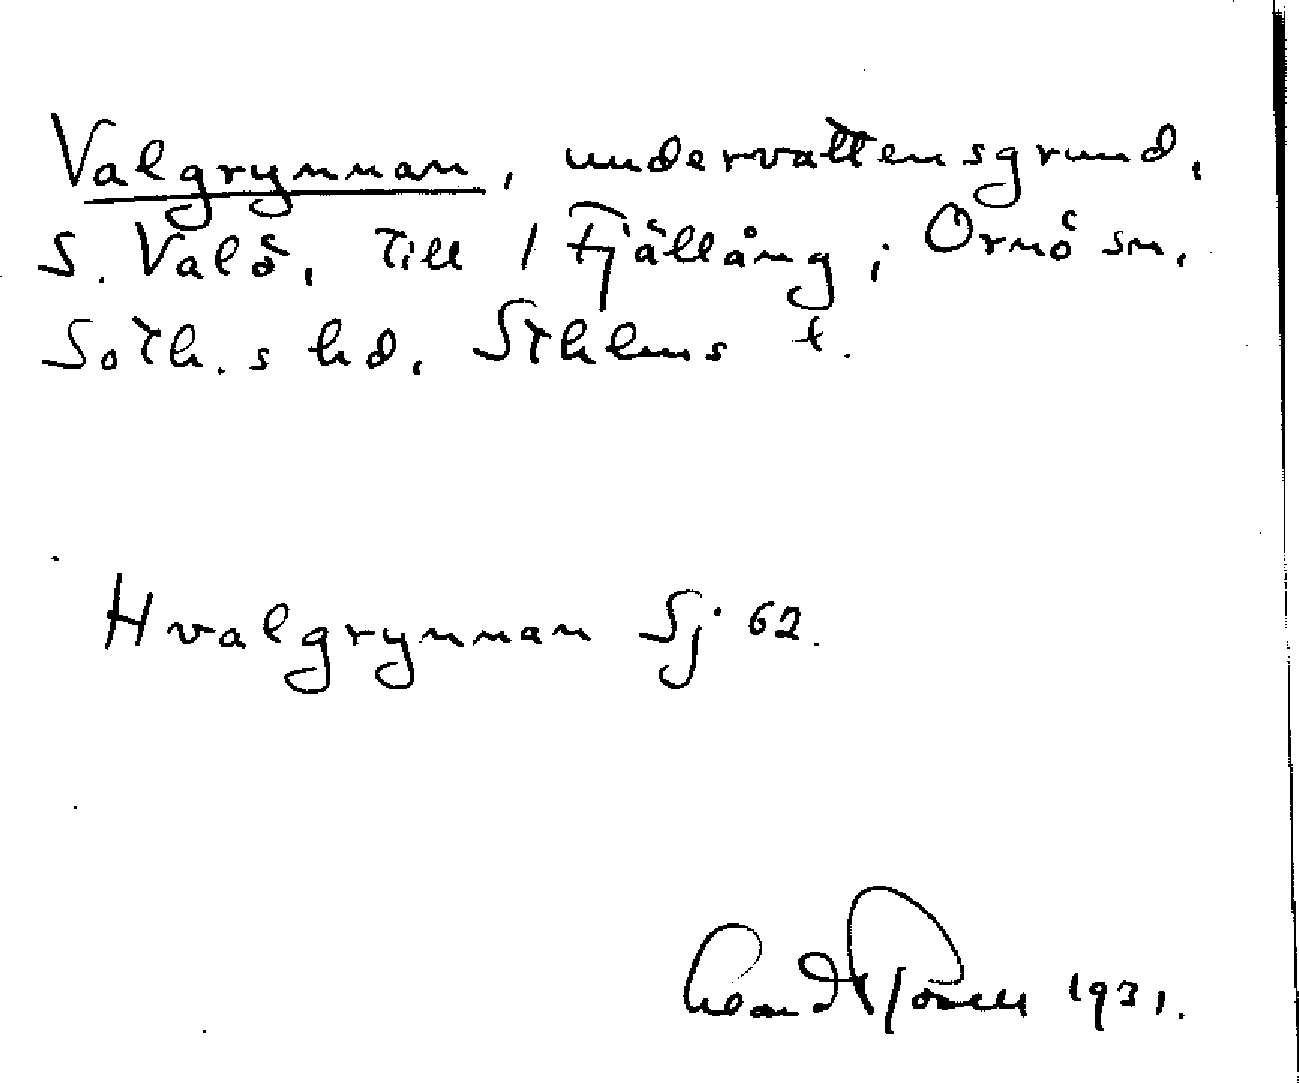 Valgrynnan, undervattensgrund,
S. Valö, till 1 Fjällång, Ornö sn,
Soth.s hd, Sthlms l.
Hvalgrynnan Sj 62.
1931.